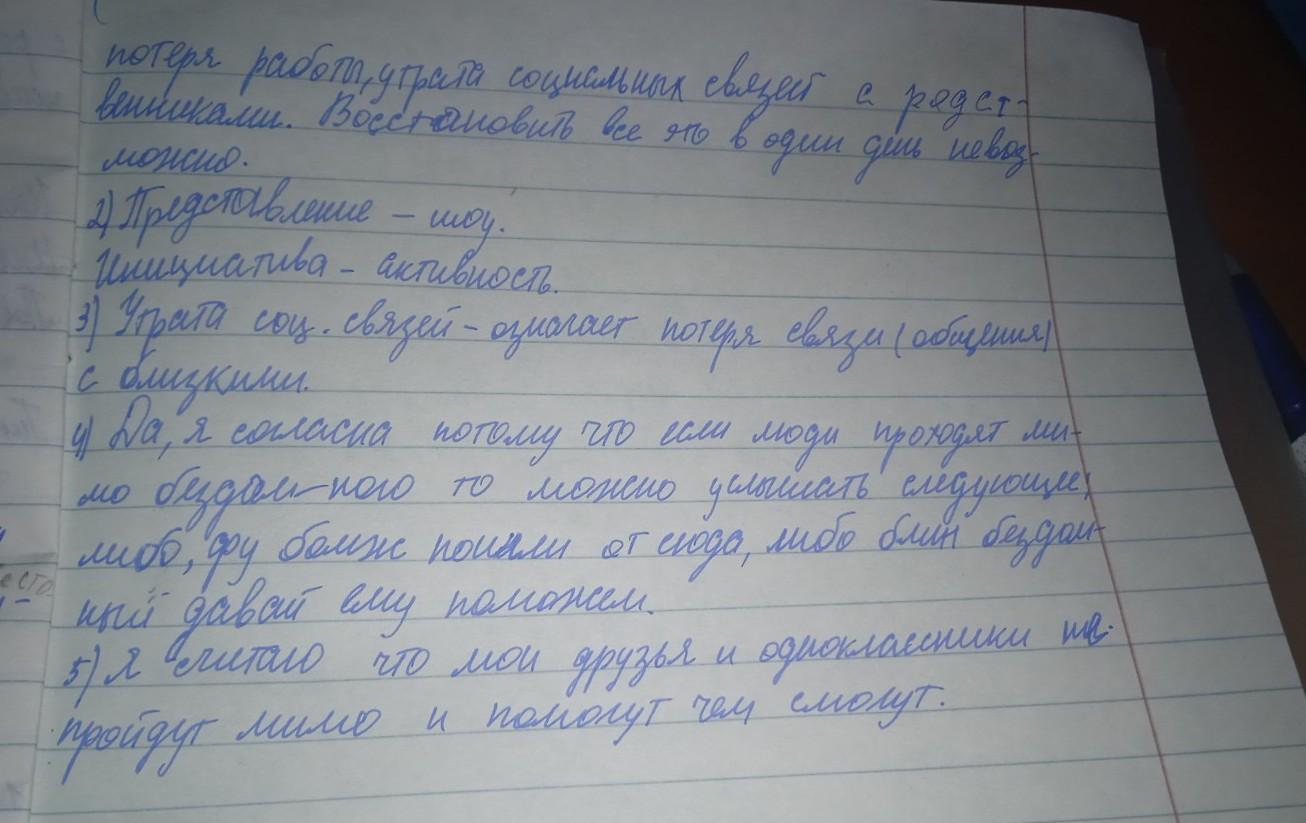 потеря работы, утрата социальных связей с родст-
венниками. Восстановить все это в один день невоз-
можно.
2) Представление – шоу.
Инициатива – активность.
3) Утрата соц. связей – означает потеря связи (общения)
с близкими.
4) Да, я согласна потому что если люди проходят ми-
мо бездом-ного то можно услышать следующее,
либо, фу бомж пошли от сюда, либо блин бездом-
ный давай ему поможем.
5) Я считаю что мои друзья и одноклассники не
пройдут мимо и помогут чем смогут.